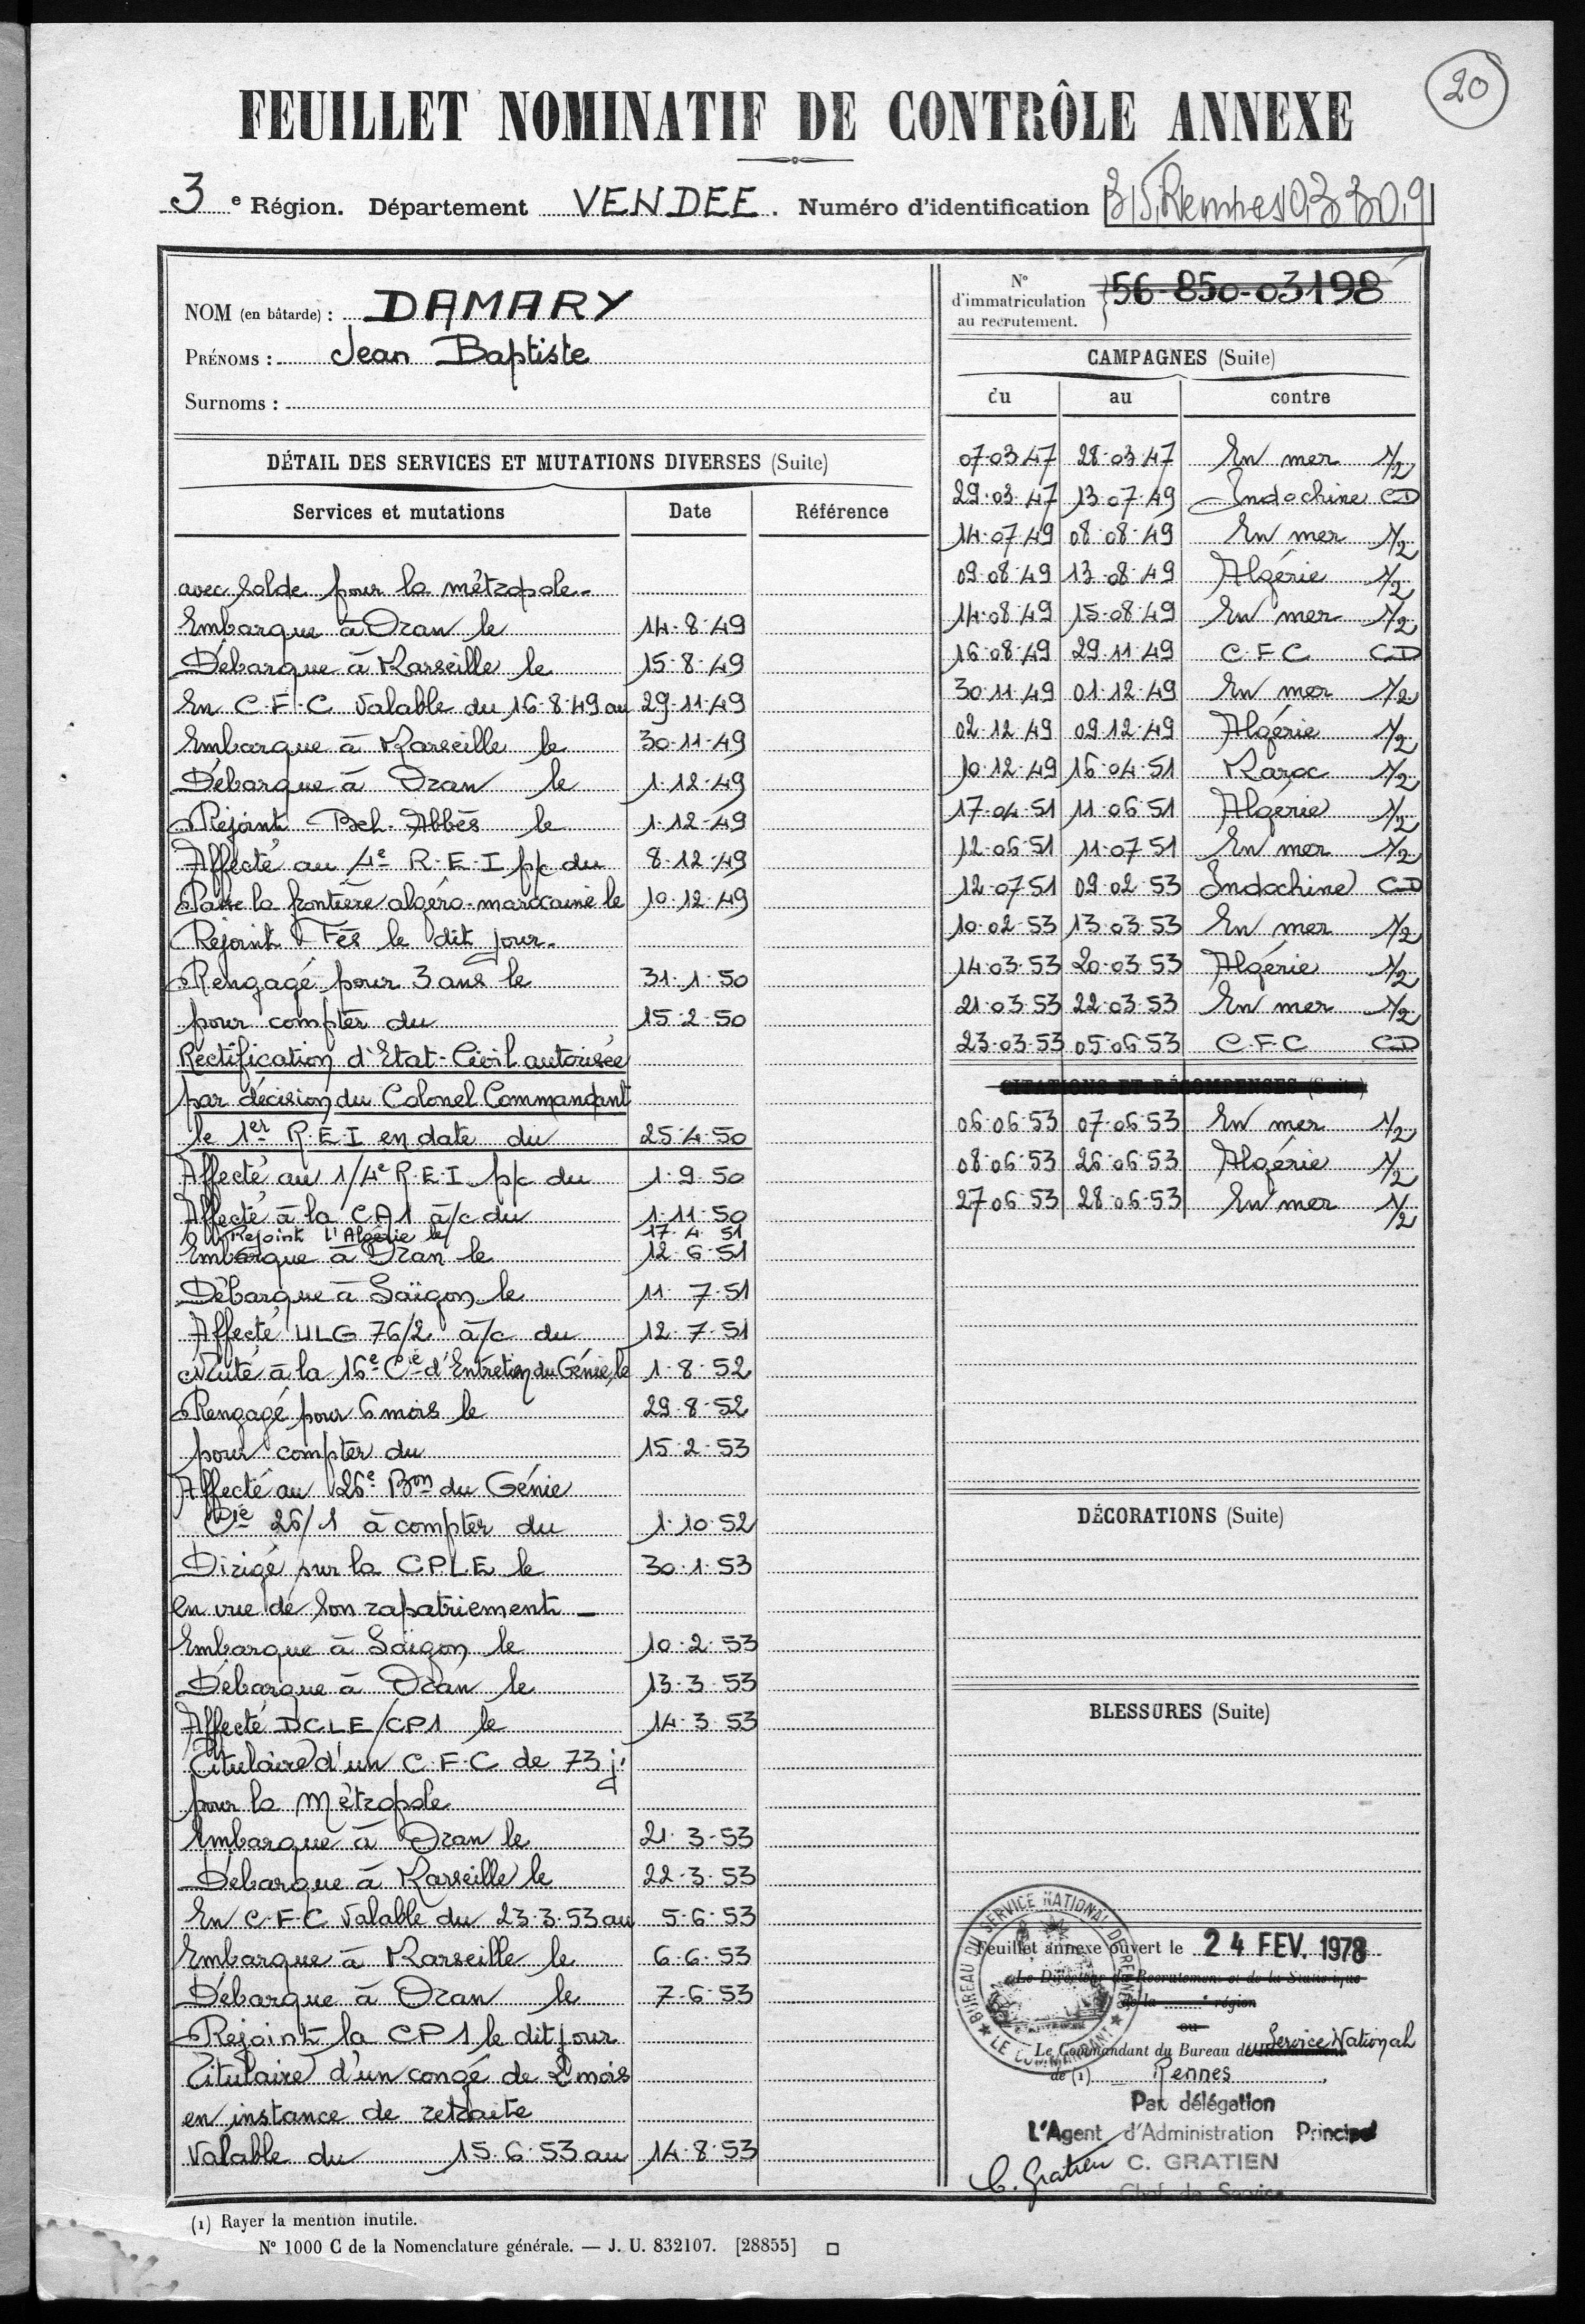 20
FEUILLET NOMINATIF DE CONTRÔLE ANNEXE
3 e Région. Département VENDEE. Numéro d'identification
NOM (en bâtarde) : DAMARY
PRÉNOMS : Jean Baptiste
Surnoms :
DÉTAIL DES SERVICES ET MUTATIONS DIVERSES (Suite)
Services et mutations Date Référence
avec solde pour la métropole.
Embarque à Oran le 14.8.49
Débarque à Marseille le 15.8.49
En C.F.C valable du 16.8.49 au 29.11.49
Embarque à Marseille le 30.11.49
Débarque à Oran le 1.12.49
Rejoint Bel-Abbès le 1.12.49
Affecté au 4e R.E.I p/c du 8.12.49
Passe la frontière algéro-marocaine le 10.12.49
Rejoint Fés le dit jour.
Rengagé pour 3 ans le 31.1.50
pour compter du 15.2.50
Rectification d'Etat-Civil autorisée
par décision du Colonel Commandant
le 1er R.E.I en date du 25.4.50
Affecté au 1/4e R.E.I p/c du 1.9.50
Affecté à la CA1 à/c du 1.11.50
Rejoint l'Algérie le 17.4.51
Embarque à Oran le 12.6.51
Débarque à Saïgon le 11.7.51
Affecté ULG 76/2 à/c du 12.7.51
Muté à la 16e Cie d'Entretien du Génie le 1.8.52
Rengagé pour 6 mois le 29.8.52
pour compter du 15.2.53
Affecté au 26e Bon du Génie
Cie 26/1 à compter du 1.10.52
Dirigé sur la CPLE le 30.1.53
en vue de son rapatriement -
Embarque à Saïgon le 10.2.53
Débarque à Oran le 13.3.53
Affecté DCLE/CP1 le 14.3.53
Titulaire d'un C.F.C de 73 j.
pour la Métropole
Embarque à Oran le 21.3.53
Débarque à Marseille le 22.3.53
En C.F.C valable du 23.3.53 au 5.6.53
Embarque à Marseille le 6.6.53
Débarque à Oran le 7.6.53
Rejoint la CP1 le dit jour
Titulaire d'un congé de 2 mois
en instance de retraite
Valable du 15.6.53 au 14.8.53
N° d'immatriculation au recrutement. 56-850-03198
CAMPAGNES (Suite)
du au contre
07.03.47 28.03.47 En mer 1/2
29.03.47 13.07.49 Indochine CD
14.07.49 08.08.49 En mer 1/2
09.08.49 13.08.49 Algérie 1/2
14.08.49 15.08.49 En mer 1/2
16.08.49 29.11.49 C.F.C CD
30.11.49 01.12.49 En mer 1/2
02.12.49 09.12.49 Algérie 1/2
10.12.49 16.04.51 Maroc 1/2
17.04.51 11.06.51 Algérie 1/2
12.06.51 11.07.51 En mer 1/2
12.07.51 09.02.53 Indochine CD
10.02.53 13.03.53 En mer 1/2
14.03.53 20.03.53 Algérie 1/2
21.03.53 22.03.53 En mer 1/2
23.03.53 05.06.53 C.F.C CD
CITATIONS ET RÉCOMPENSES (Suite)
06.06.53 07.06.53 En mer 1/2
08.06.53 26.06.53 Algérie 1/2
27.06.53 28.06.53 En mer 1/2
DÉCORATIONS (Suite)
BLESSURES (Suite)
BUREAU DU SERVICE NATIONAL DE RENNES ★ LE COMMANDANT ★
Feuillet annexe ouvert le 24 FEV. 1978
Le Directeur du Recrutement et de la Statistique
de la e région
ou
Le Commandant du Bureau du Service National
de (1) Rennes
Par délégation
L'Agent d'Administration Principal
C. Gratien C. GRATIEN
Chef de Service
(1) Rayer la mention inutile.
N° 1000 C de la Nomenclature générale. — J. U. 832107. [28855]